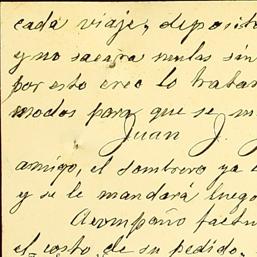 cada viaje, deposito
y no sacara mulas sin
por esto creo lo tratan
modos para que se m
Juan J.
amigo, el sombrero ya e
y se le mandará luego
Acompaño factu
el costo de su pedido.